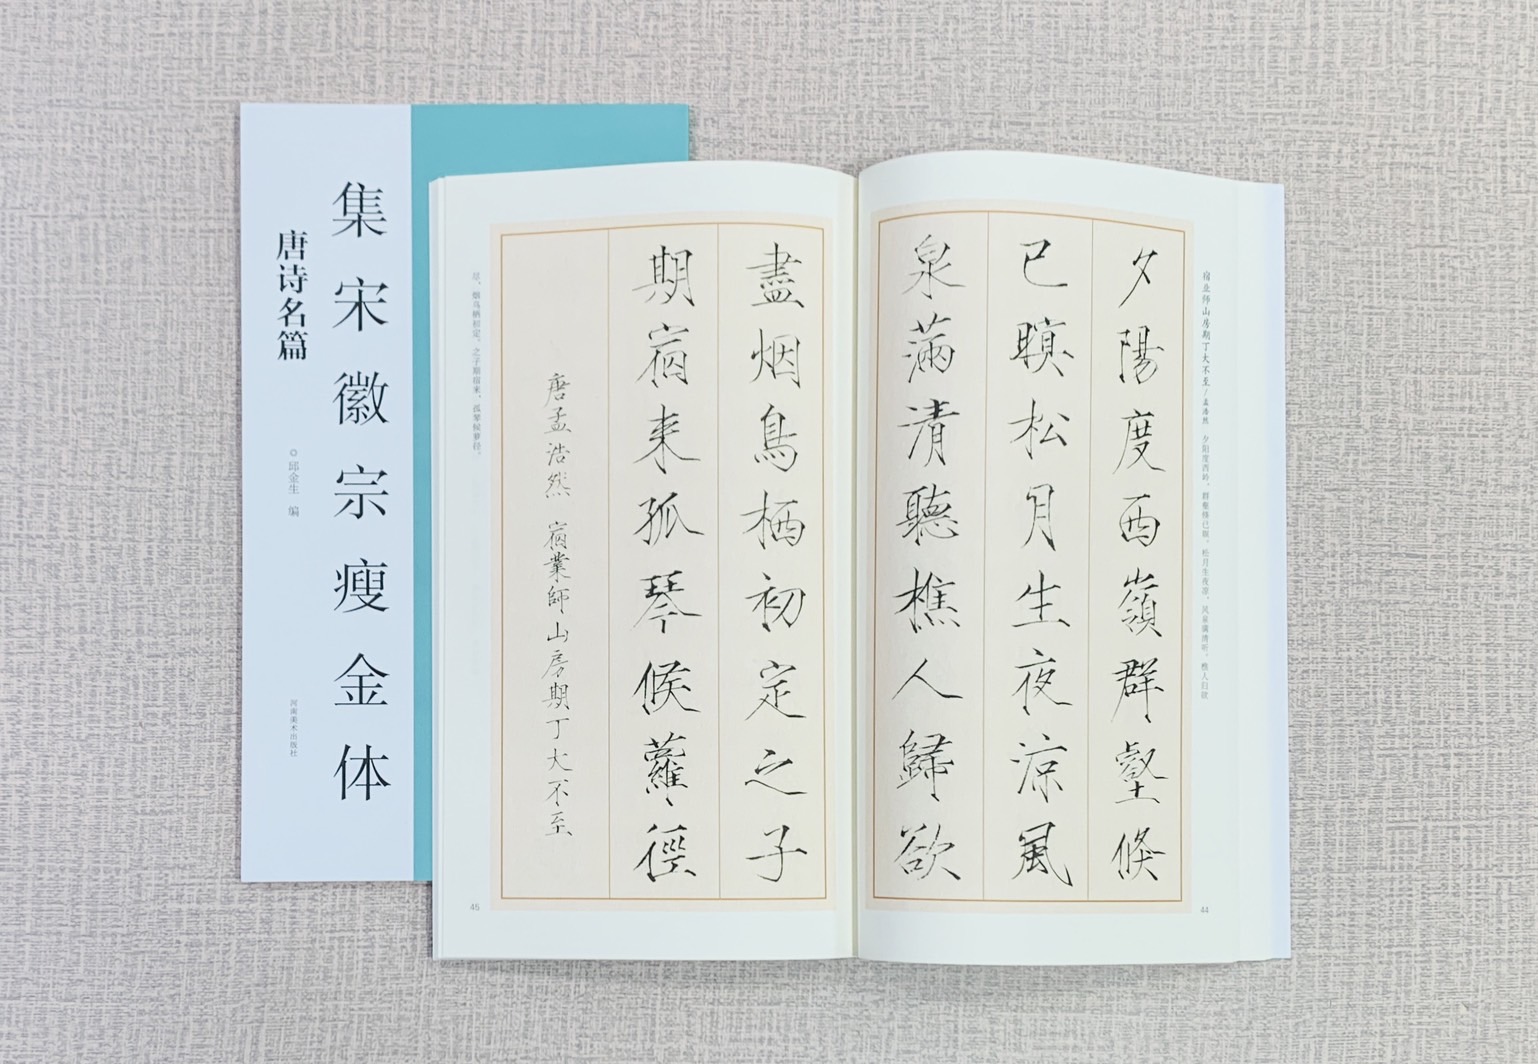 集宋徽宗瘦金体
唐诗名篇
邱金生 编
河南美术出版社
宿业师山房期丁大不至/孟浩然 夕阳度西岭，群壑倏已暝。松月生夜凉，风泉满清听。樵人归欲
夕陽度西嶺群壑倏
已暝松月生夜涼風
泉滿清聽樵人歸欲
44
盡烟鳥栖初定之子
期宿来孤琴候蘿徑
唐孟浩然 宿業師山房期丁大不至
尽，烟鸟栖初定。之子期宿来，孤琴候萝径。
45